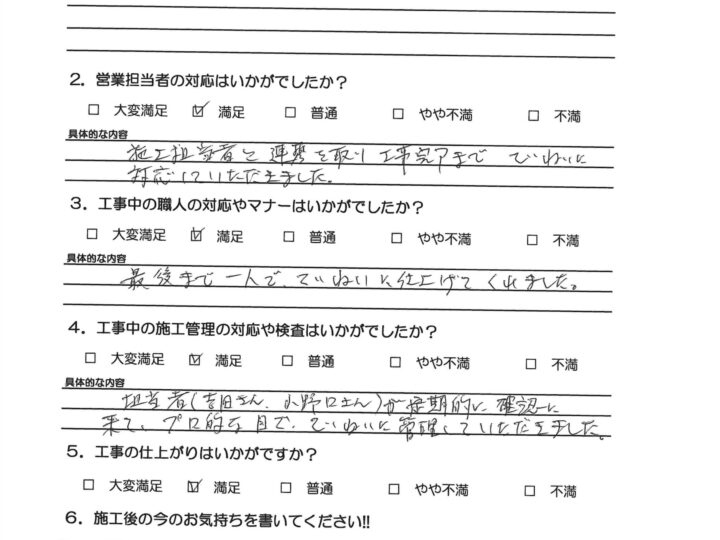 2. 営業担当者の対応はいかがでしたか？
□ 大変満足 ☑ 満足 □ 普通 □ やや不満 □ 不満
具体的な内容
施工担当者と連携を取り工事完了まで ていねいに
対応していただきました。
3. 工事中の職人の対応やマナーはいかがでしたか？
□ 大変満足 ☑ 満足 □ 普通 □ やや不満 □ 不満
具体的な内容
最後まで一人で、ていねいに仕上げてくれました。
4. 工事中の施工管理の対応や検査はいかがでしたか？
□ 大変満足 ☑ 満足 □ 普通 □ やや不満 □ 不満
具体的な内容
担当者(吉田さん、小野口さん)が定期的に確認に
来て、プロ的な目で、ていねいに管理していただきました。
5. 工事の仕上がりはいかがですか？
□ 大変満足 ☑ 満足 □ 普通 □ やや不満 □ 不満
6. 施工後の今のお気持ちを書いてください!!